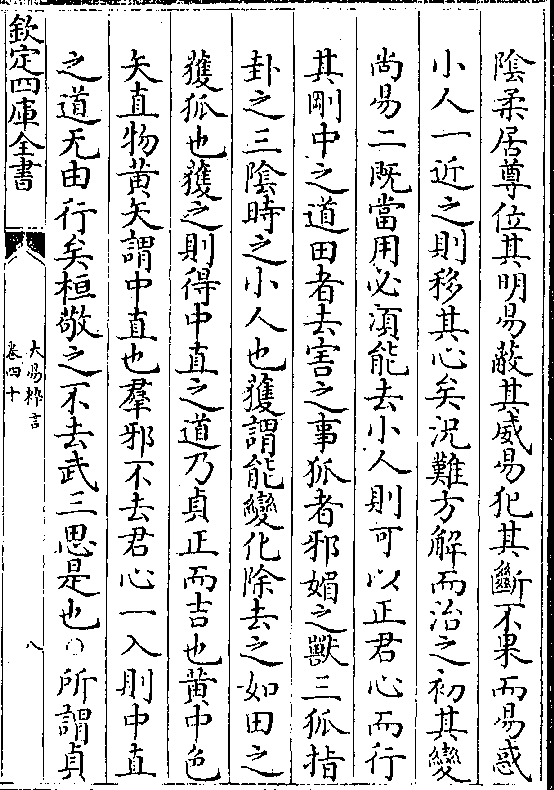 陰柔居尊位其明易蔽其威易犯其斷不果而易惑
小人一近之則移其心矣況難方解而治之初其變
尚易二既當用必須能去小人則可以正君心而行
其剛中之道田者去害之事狐者邪媚之獸三狐指
卦之三陰時之小人也獲謂能變化除去之如田之
獲狐也獲之則得中直之道乃貞正而吉也黄中色
矢直物黄矢謂中直也羣邪不去君心一入則中直
之道无由行矣桓敬之不去武三思是也○所謂貞
欽定四庫全書
大易粹言
卷四十
八